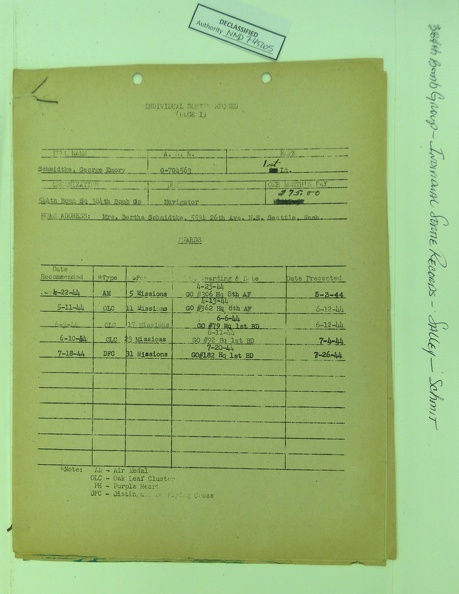 DECLASSIFIED
Authority NND 745005
384th Bomb Group - Individual Status Records - Salley - Schmit
INDIVIDUAL STATUS RECORD
(PAGE I)
FULL NAME A. S. N. RANK
Schmidtke, George Emory O-704569 1st Lt.
ORGANIZATION DUTY ONE MONTHS PAY
544th Bomb Sq 384th Bomb Gp Navigator
HOME ADDRESS: Mrs. Bertha Schmidtke, 5536 26th Ave. N.E. Seattle, Wash.
AWARDS
Date Recommended *Type *For Awarding & Date Date Presented
4-23-44
4-22-44 AM 5 Missions GO #306 Hq 8th AF 5-3-44
5-11-44 OLC 11 Missions GO #362 Hq 8th AF 6-12-44
6-6-44
OLC 17 Missions GO #79 Hq 1st BD 6-12-44
6-11-44
6-10-44 OLC 23 Missions GO #92 Hq 1st BD 7-4-44
7-20-44
7-18-44 DFC 31 Missions GO#182 Hq 1st BD 7-26-44
*Note: AM - Air Medal
OLC - Oak Leaf Cluster
PH - Purple Heart
DFC - Distinguished Flying Cross